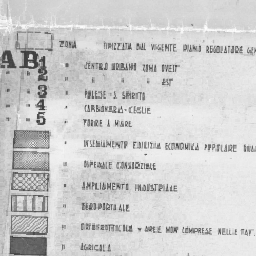 ZONA TIPIZZATA DAL VIGENTE PIANO REGOLATORE GEN
A B 1 " CENTRO URBANO ZONA OVEST
2 " " " " EST
3 " PALESE - S. SPIRITO
4 " CARBONARA - CEGLIE
5 " TORRE A MARE
" INSEDIAMENTO EDILIZIA ECONOMICA POPOLARE
" OSPEDALE CONSORZIALE
" AMPLIAMENTO INDUSTRIALE
" AEROPORTUALE
" ORTOFRUTTICOLA E AREE NON COMPRESE NELLE TAV.
" AGRICOLA